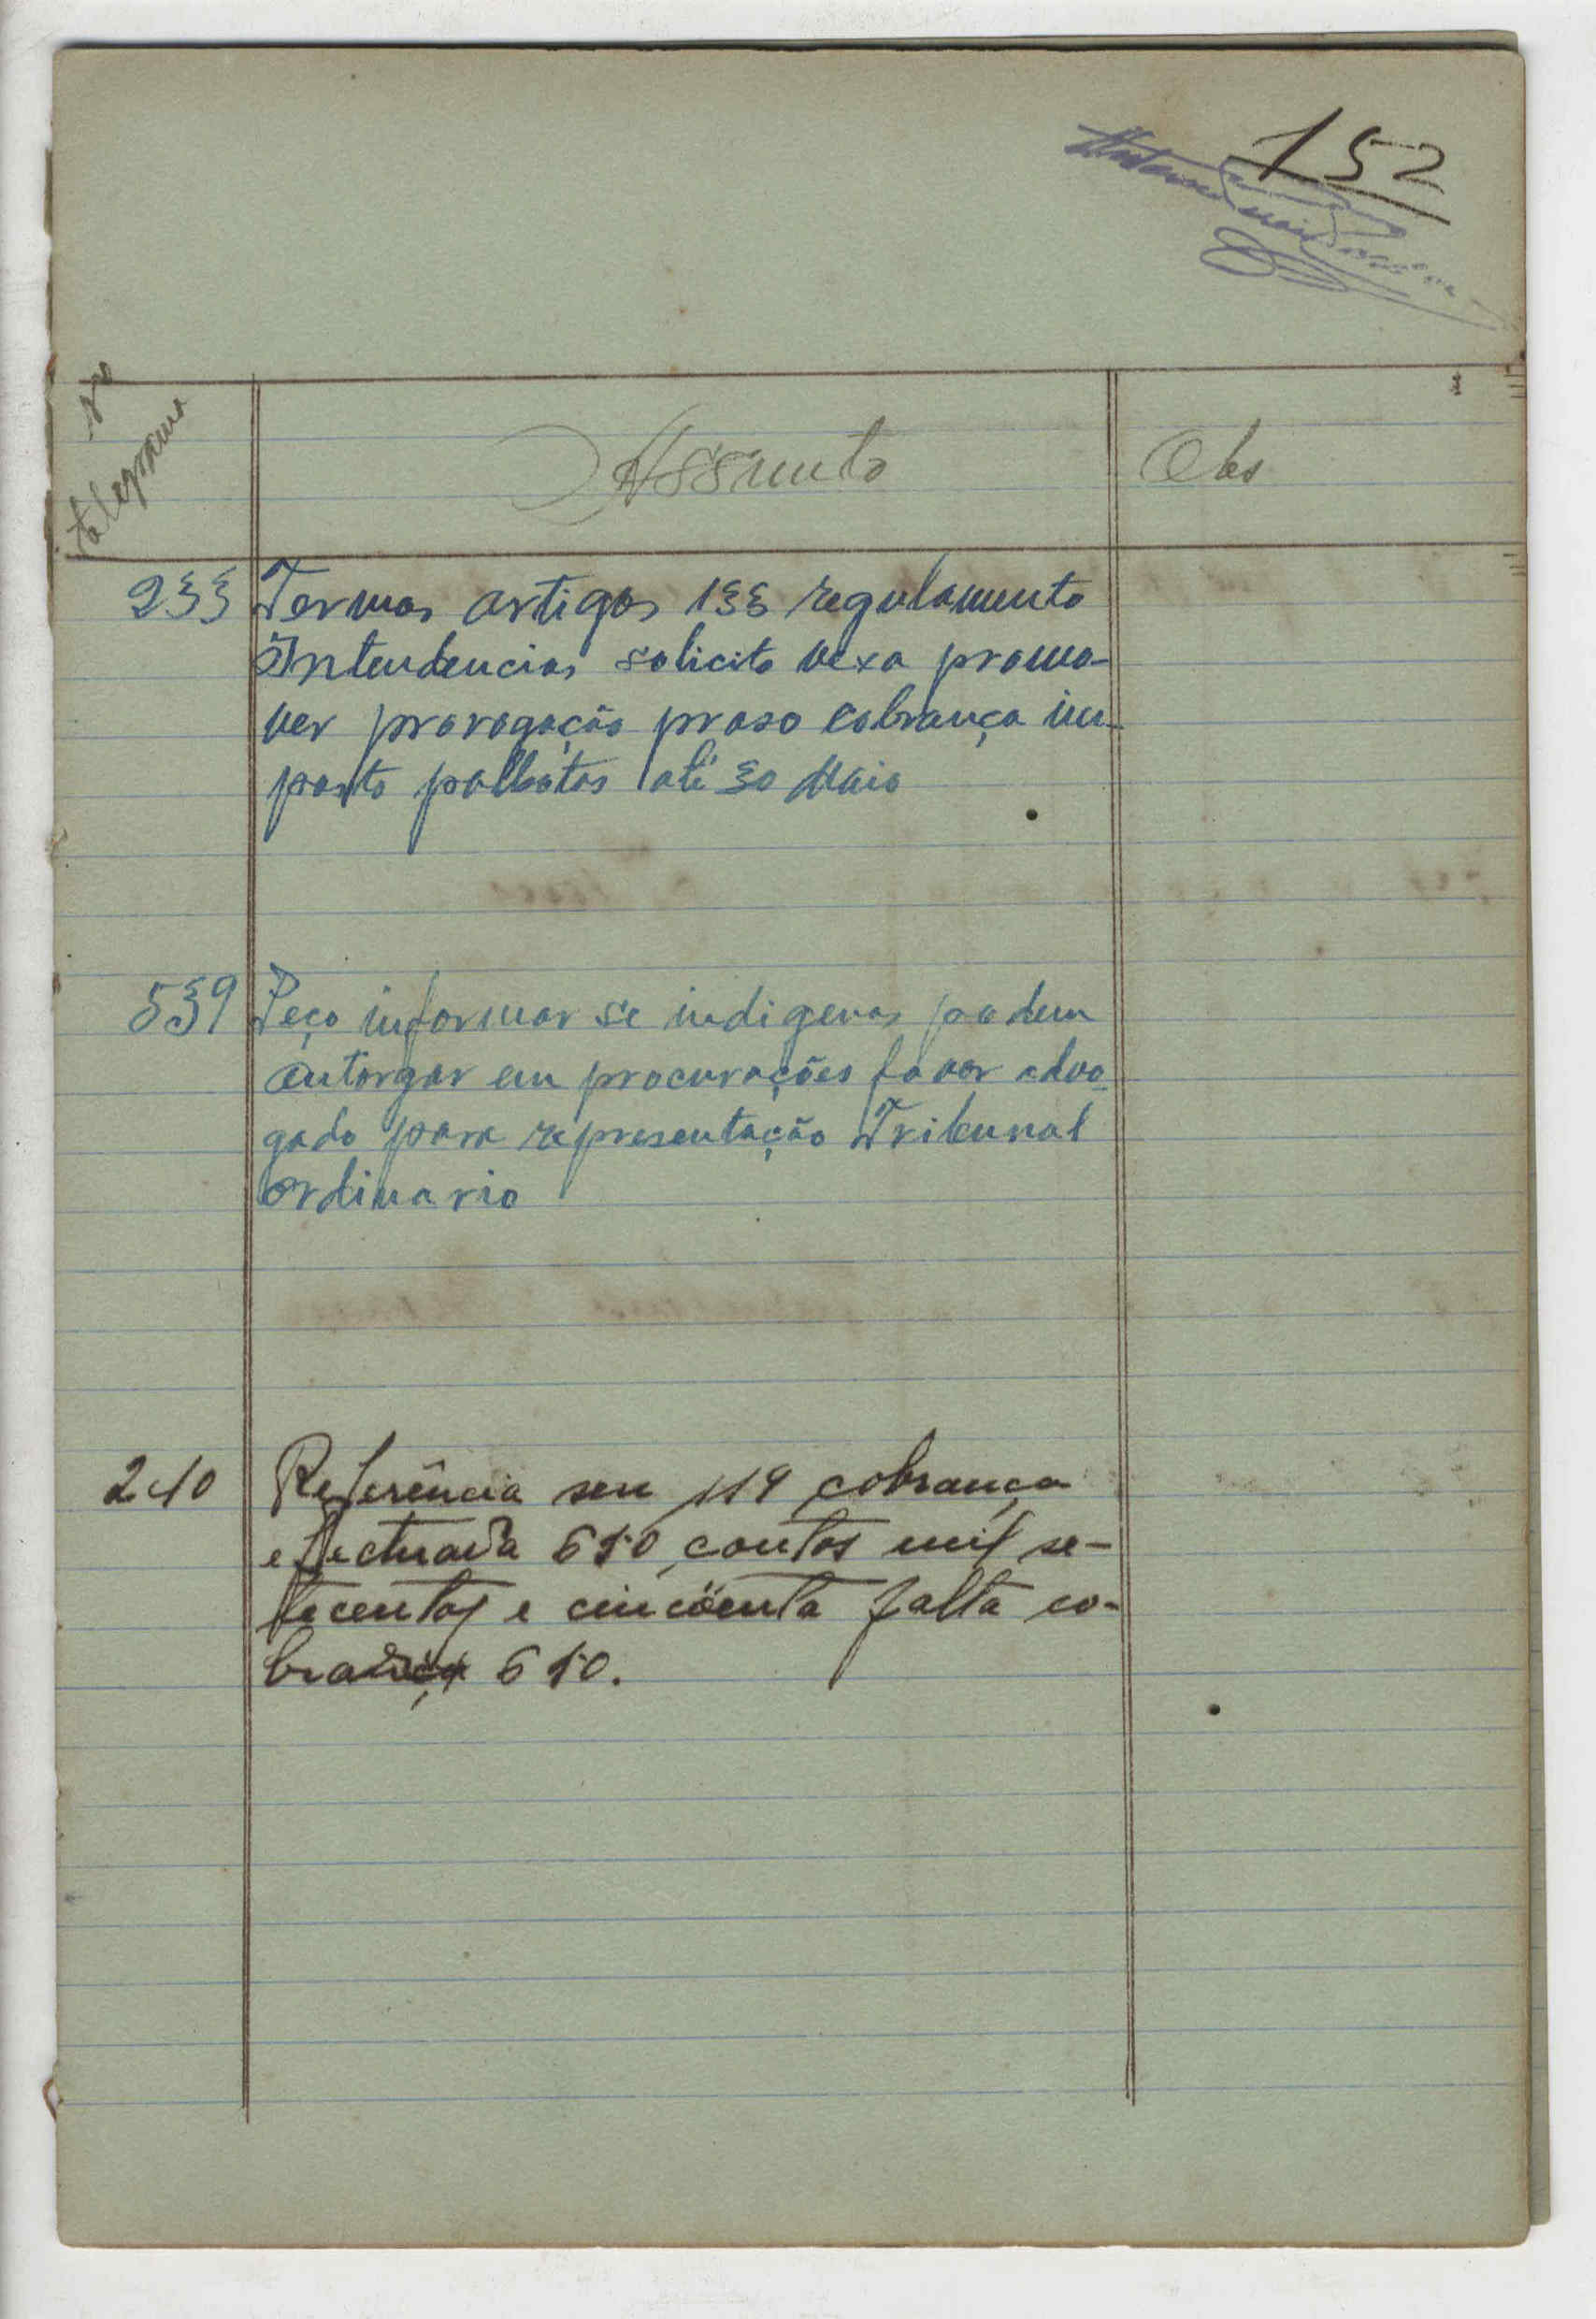 152
Nº
telegrama
Assunto
Obs
233
Termos artigos 133 regulamento
Intendencias solicito vexa promo-
ver prorogação praso cobrança im-
posto palhotas até 30 Maio
539
Peço informar se indigenas podem
outorgar em procurações favor advo-
gado para representação Tribunal
Ordinario
240
Referência seu 119 cobrança
efectuada 650 contos mil se-
tecentos e cincöenta falta co-
brança 650.